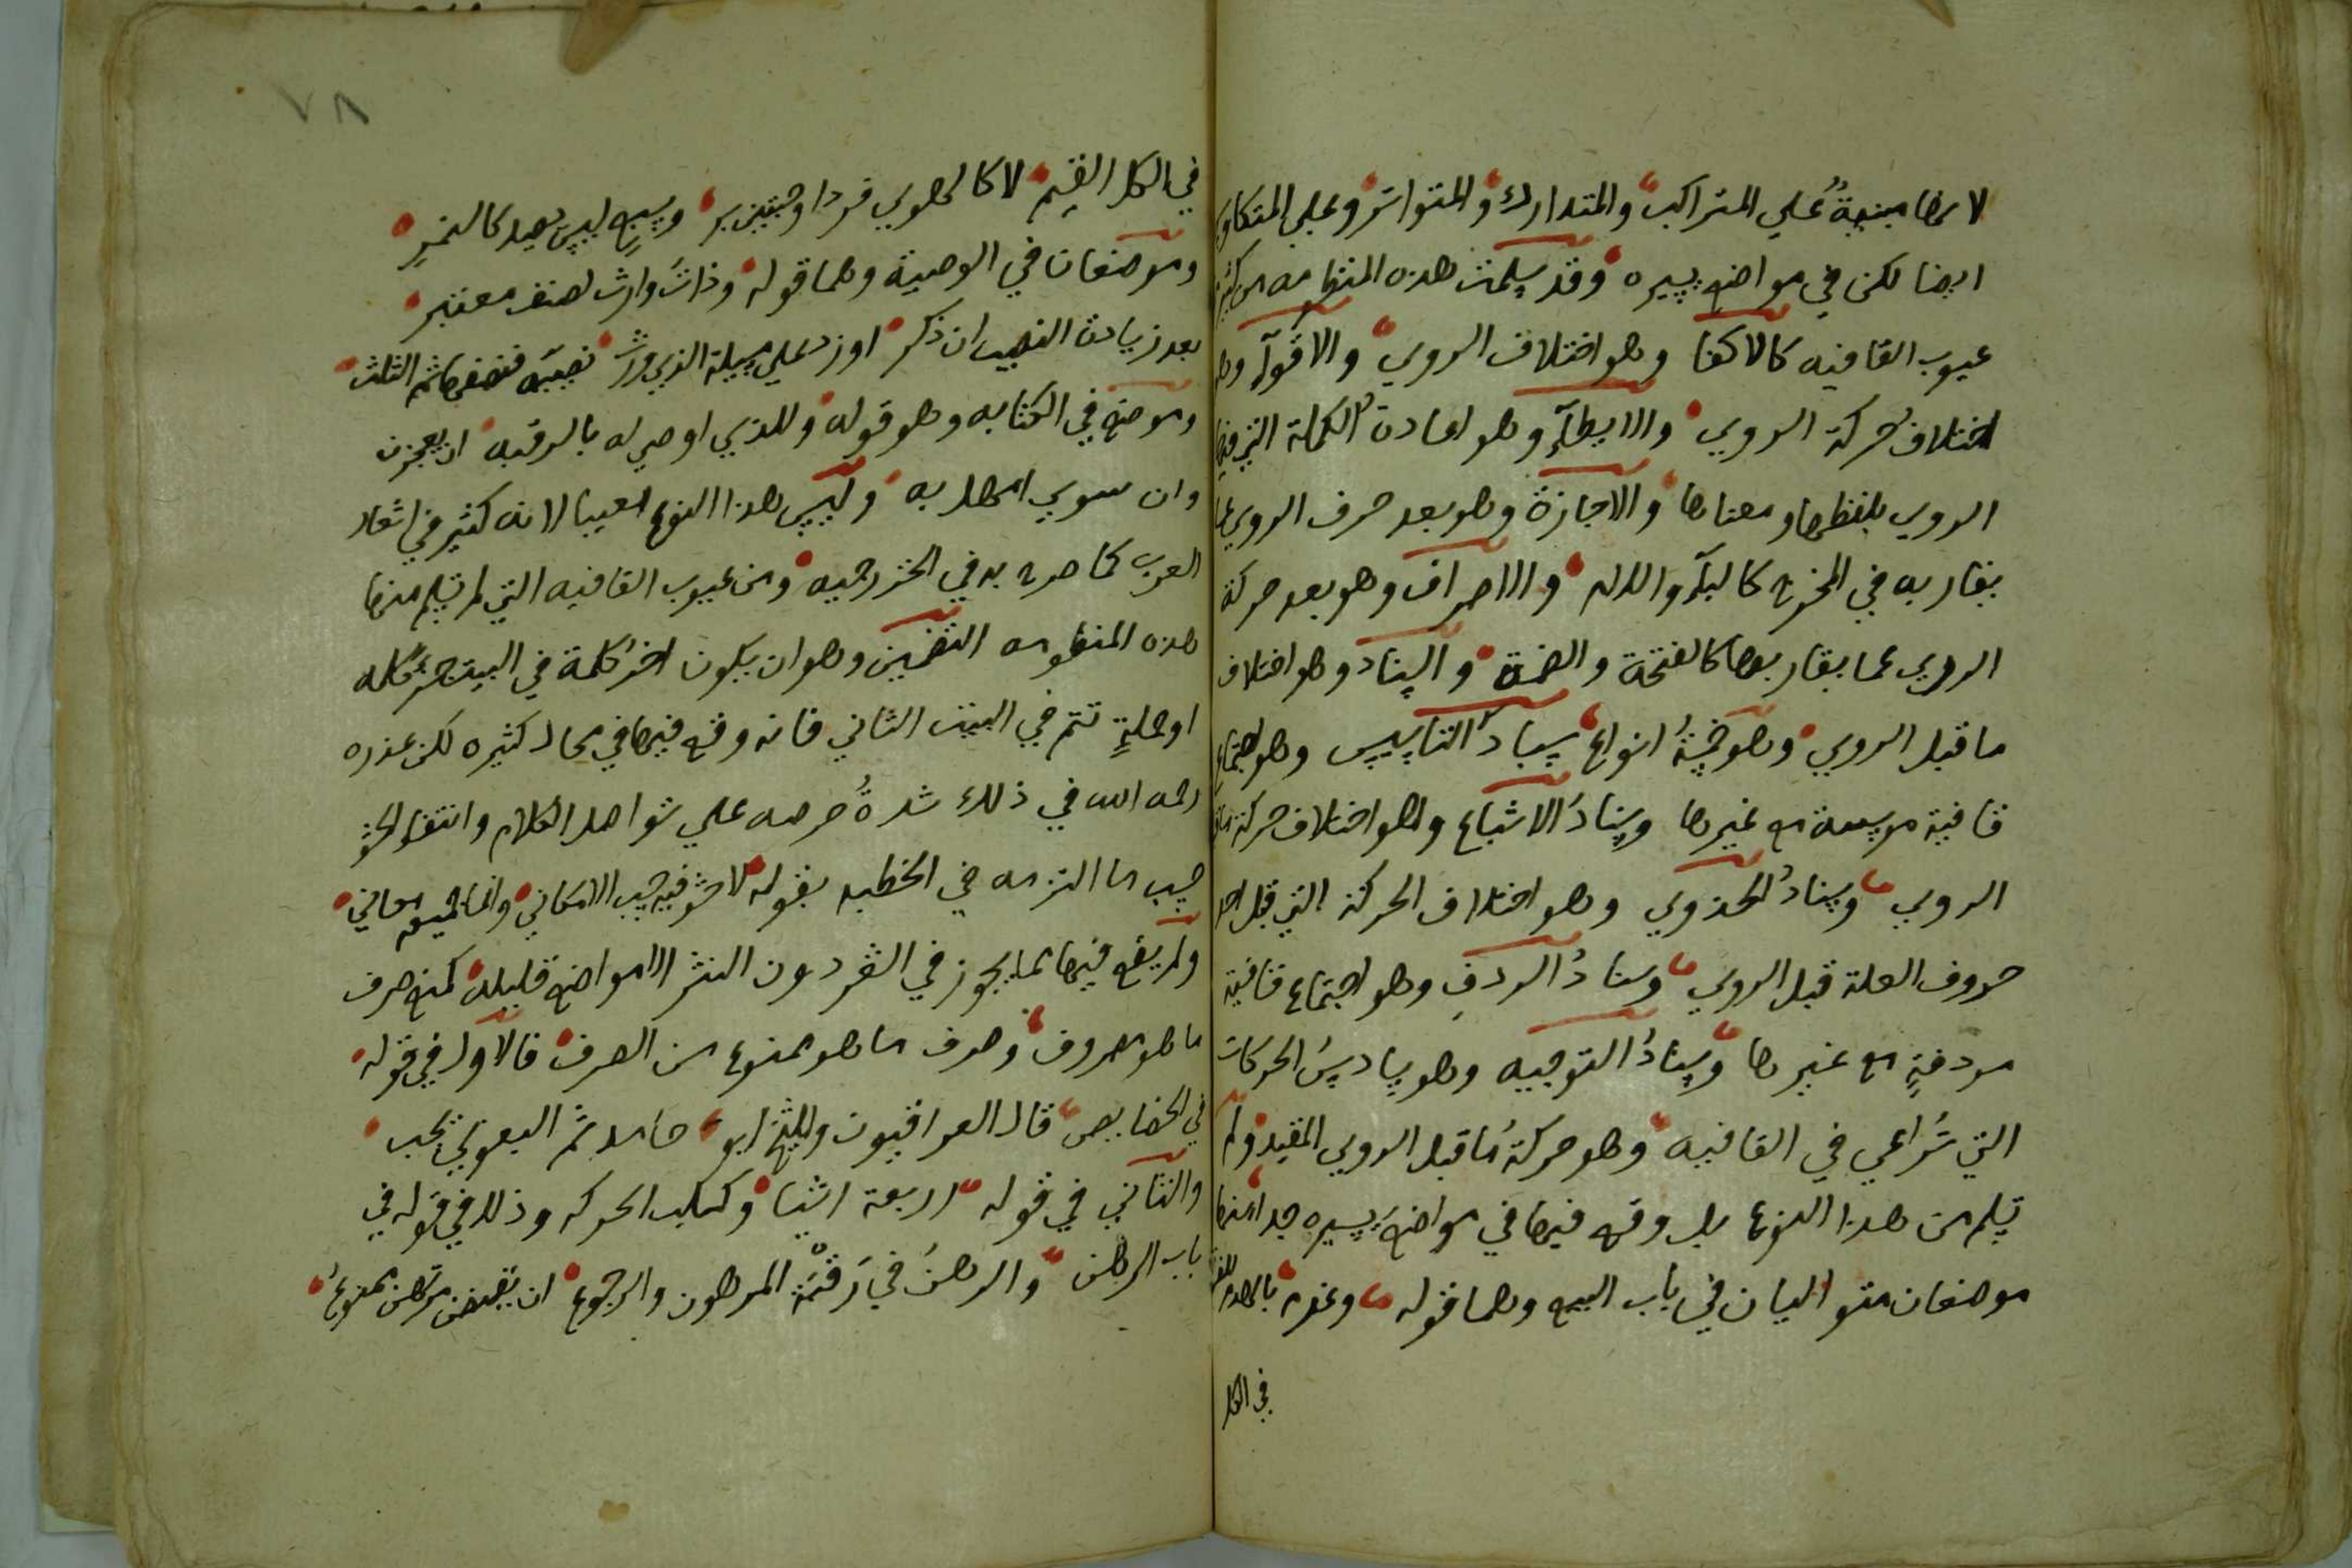 لانها مبنية على المتراكب والمتدارك والمتواتر وعلى المتكاوس
ايضا لكن في مواضع يسيره وقد سلمت هذه المنظومه من كثير
عيوب القافيه كالاكفا وهو اختلاف الروي والاقوآء وهو
اختلاف حركة الروي والايطآء وهو اعادة الكلمة التي فيها
الروي بلفظها ومعناها والاجازة وهو بعد حرف الروي عما
يقاربه في المخرج كالبآء واللام والاصراف وهو بعد حركة
الروي عما يقاربها كالفتحة والضمة والسناد وهو اختلاف
ما قبل الروي وهو خمسة انواع سناد التاسيس وهو اجتماع
قافية موسسة مع غيرها وسناد الاشباع وهو اختلاف حركة
الروي وسناد الحذوي وهو اختلاف الحركة التي قبل احد
حروف العلة قبل الروي وسناد الردف وهو اجتماع قافية
مردفة مع غيرها وسناد التوجيه وهو سادس الحركات
التي تراعي في القافيه وهو حركة ما قبل الروي المقيد ولم
تسلم من هذا النوع بل وقع فيها في مواضع يسيره جدا منها
موضعان متواليان في باب البيع وهما قوله وعنده بالهدم
في الكل
٧٨
في الكل القيم لا كالحلوي فردا وحبتين بر وبيع ليس بعيد كالثمر
وموضعان في الوصية وهما قوله وذات وارث لصنف معتبر
بعد زيادة النصيب ان ذكر اوزد على مسيلة الذي ورث نصيبه فنصفها ثم الثلث
وموضع في الكتابه وهو قوله وللذي اوصي له بالرقبه ان يعجزن
وان سوي امهله به وليس هذا النوع معيبا لانه كثير في اشعار
العرب كما صرح به في الخزرجيه ومن عيوب القافيه التي لم تسلم منها
هذه المنظومه التضمين وهو ان يكون اخر كلمة في البيت جزء كلمه
او جملة تتم في البيت الثاني فانه وقع فيها في محال كثيره لكن عذره
رحمه الله في ذلك شدة حرصه على شواهد الكلام وانتفا الحشو
حسب ما التزمه في الخطبه بقوله لا حشو فيه حسب الامكاني وانما جميعه معاني
ولم يقع فيها مما يجوز في الشعر دون النثر الا مواضع قليله كمنع صرف
ما هو مصروف وصرف ما هو ممنوع من الصرف فالاول في قوله
في الخصايص قال العراقيون والشيخ ابو حامد ثم البغوي يجب
والثاني في قوله اربعة اشيا وكسلب الحركه وذلك في قوله في
باب الرهن والرهن في رقبة المرهون والرجوع ان يقبضن مرتهن ممنوع